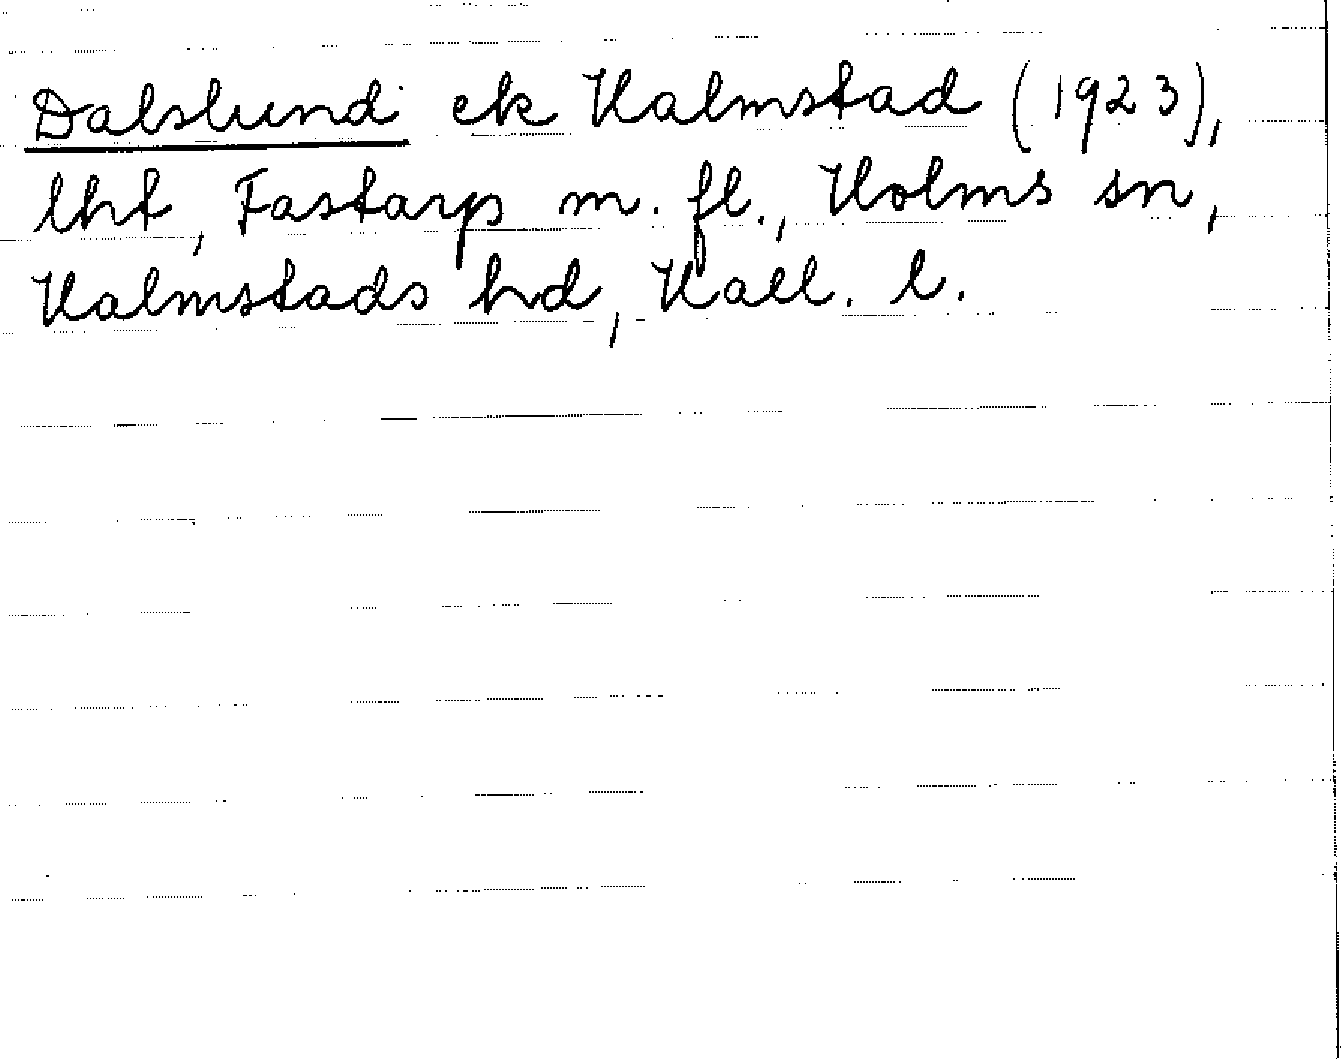 Dalslund ek Halmstad (1923),
lht, Fastarp m. fl., Holms sn,
Halmstads hd, Hall. l.